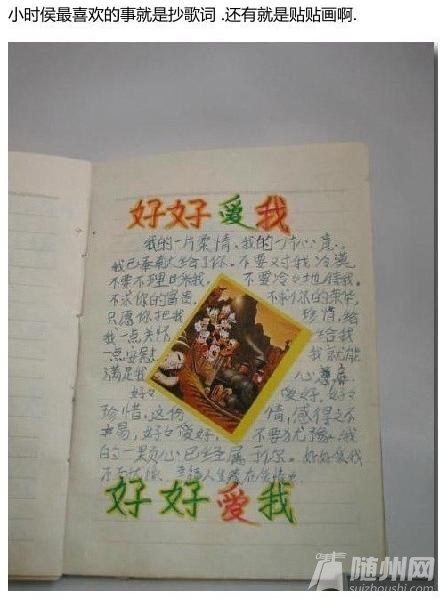 小时侯最喜欢的事就是抄歌词 .还有就是贴贴画啊.
好好爱我
我的一片柔情、我的一个心意、
我已奉献给了你。不要对我冷漠
不要不理睬我。 不要冷冷地待我。
不求你的 不求你的
只愿你把我 珍惜,给
我一点关怀 给我
一点安慰 我就能
满足我 心意
好好 爱好、好好
珍惜。这份 情,感得之不
易,好好爱好, 不要犹豫、我
的一颗心已全属于你。好好爱我
幸福人生
好好爱我
随州网
suizhoushi.com